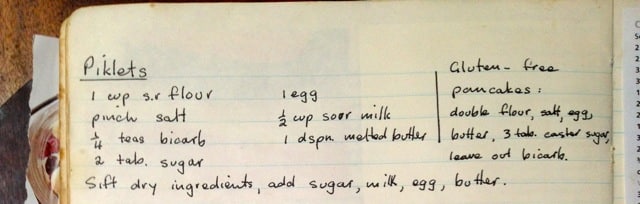 Piklets
1 cup s.r flour
pinch salt
1/4 teas bicarb
2 tab. sugar
1 egg
1/2 cup sour milk
1 dspn. melted butter
Gluten-free
pancakes:
double flour, salt, egg,
butter, 3 tab. caster sugar,
leave out bicarb.
Sift dry ingredients, add sugar, milk, egg, butter.